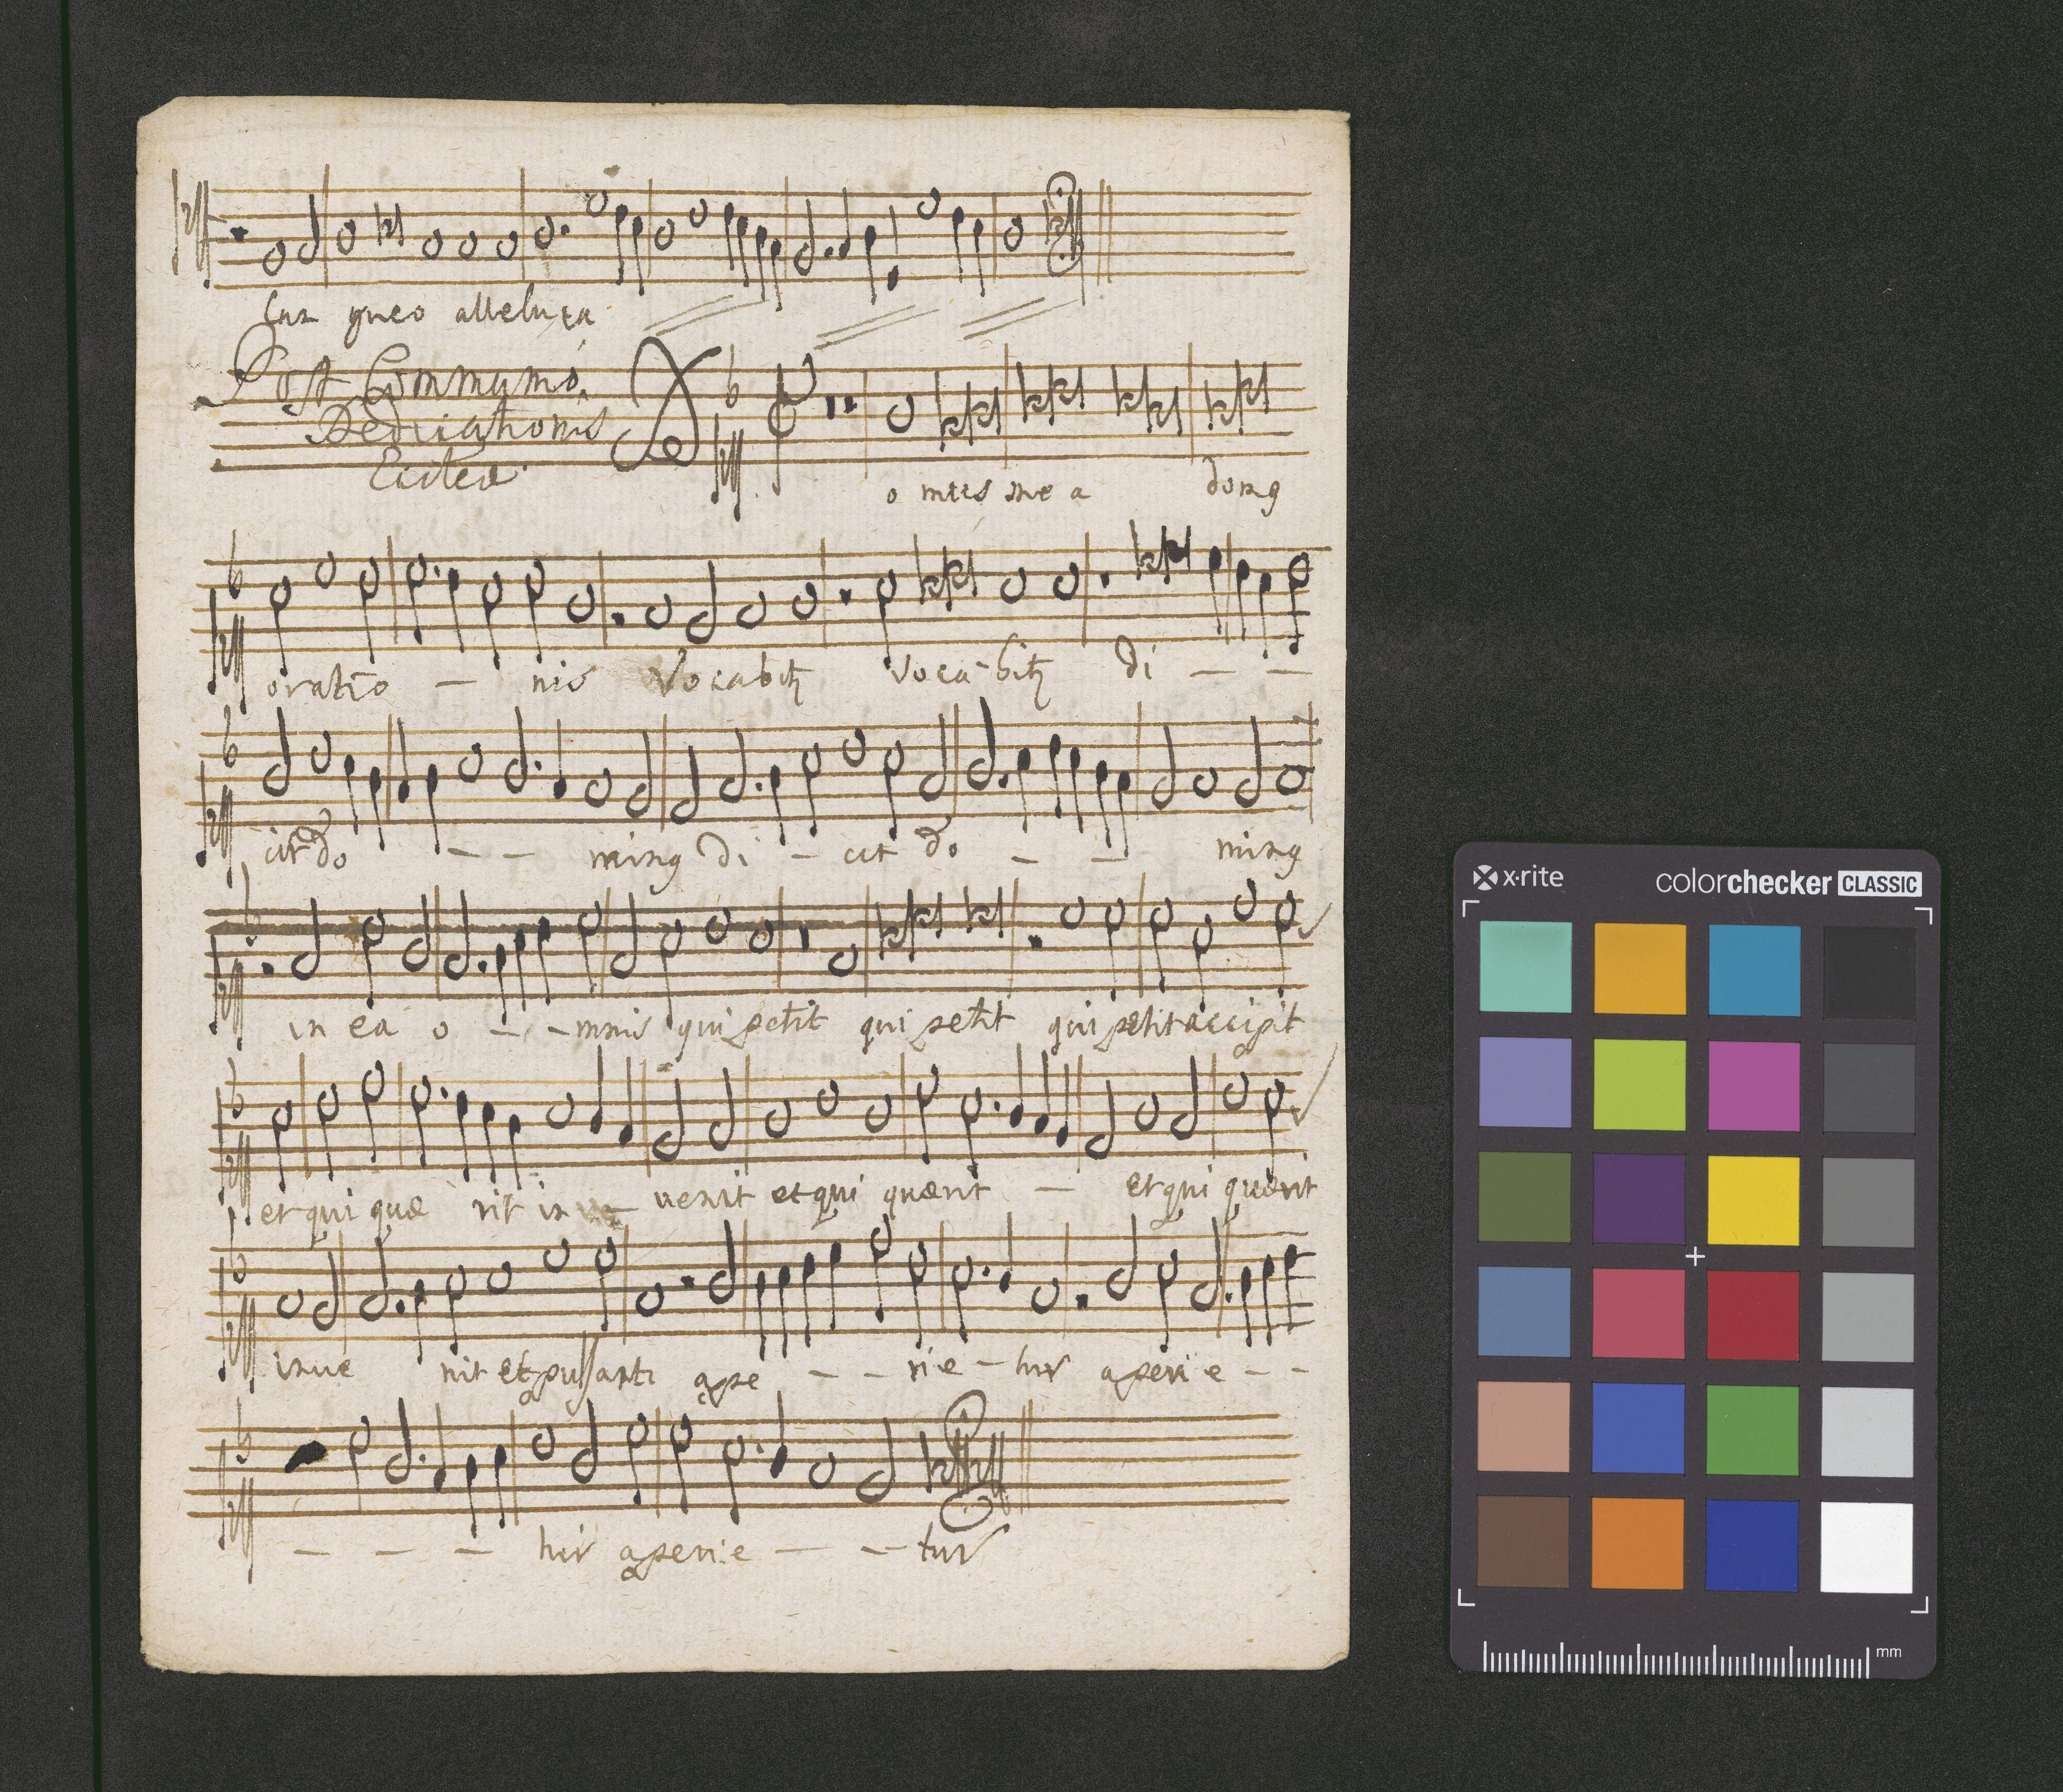 alleluia
Post Communio
Dedicationis
Eccles
o mus me a domꝰ
oratio - nis Vocabitꝛ Voca-bitꝛ di - -
cit do - - minꝰ di - cit do - - minꝰ
in ea o - - mnis qui petit qui petit qui petit accipit
et qui quæ rit in - uenit et qui quærit - et qui quærit
inue nit et pulsanti ape - - rie - tur aperie - -
- - - tur aperie - - tur
x·rite colorchecker CLASSIC
mm